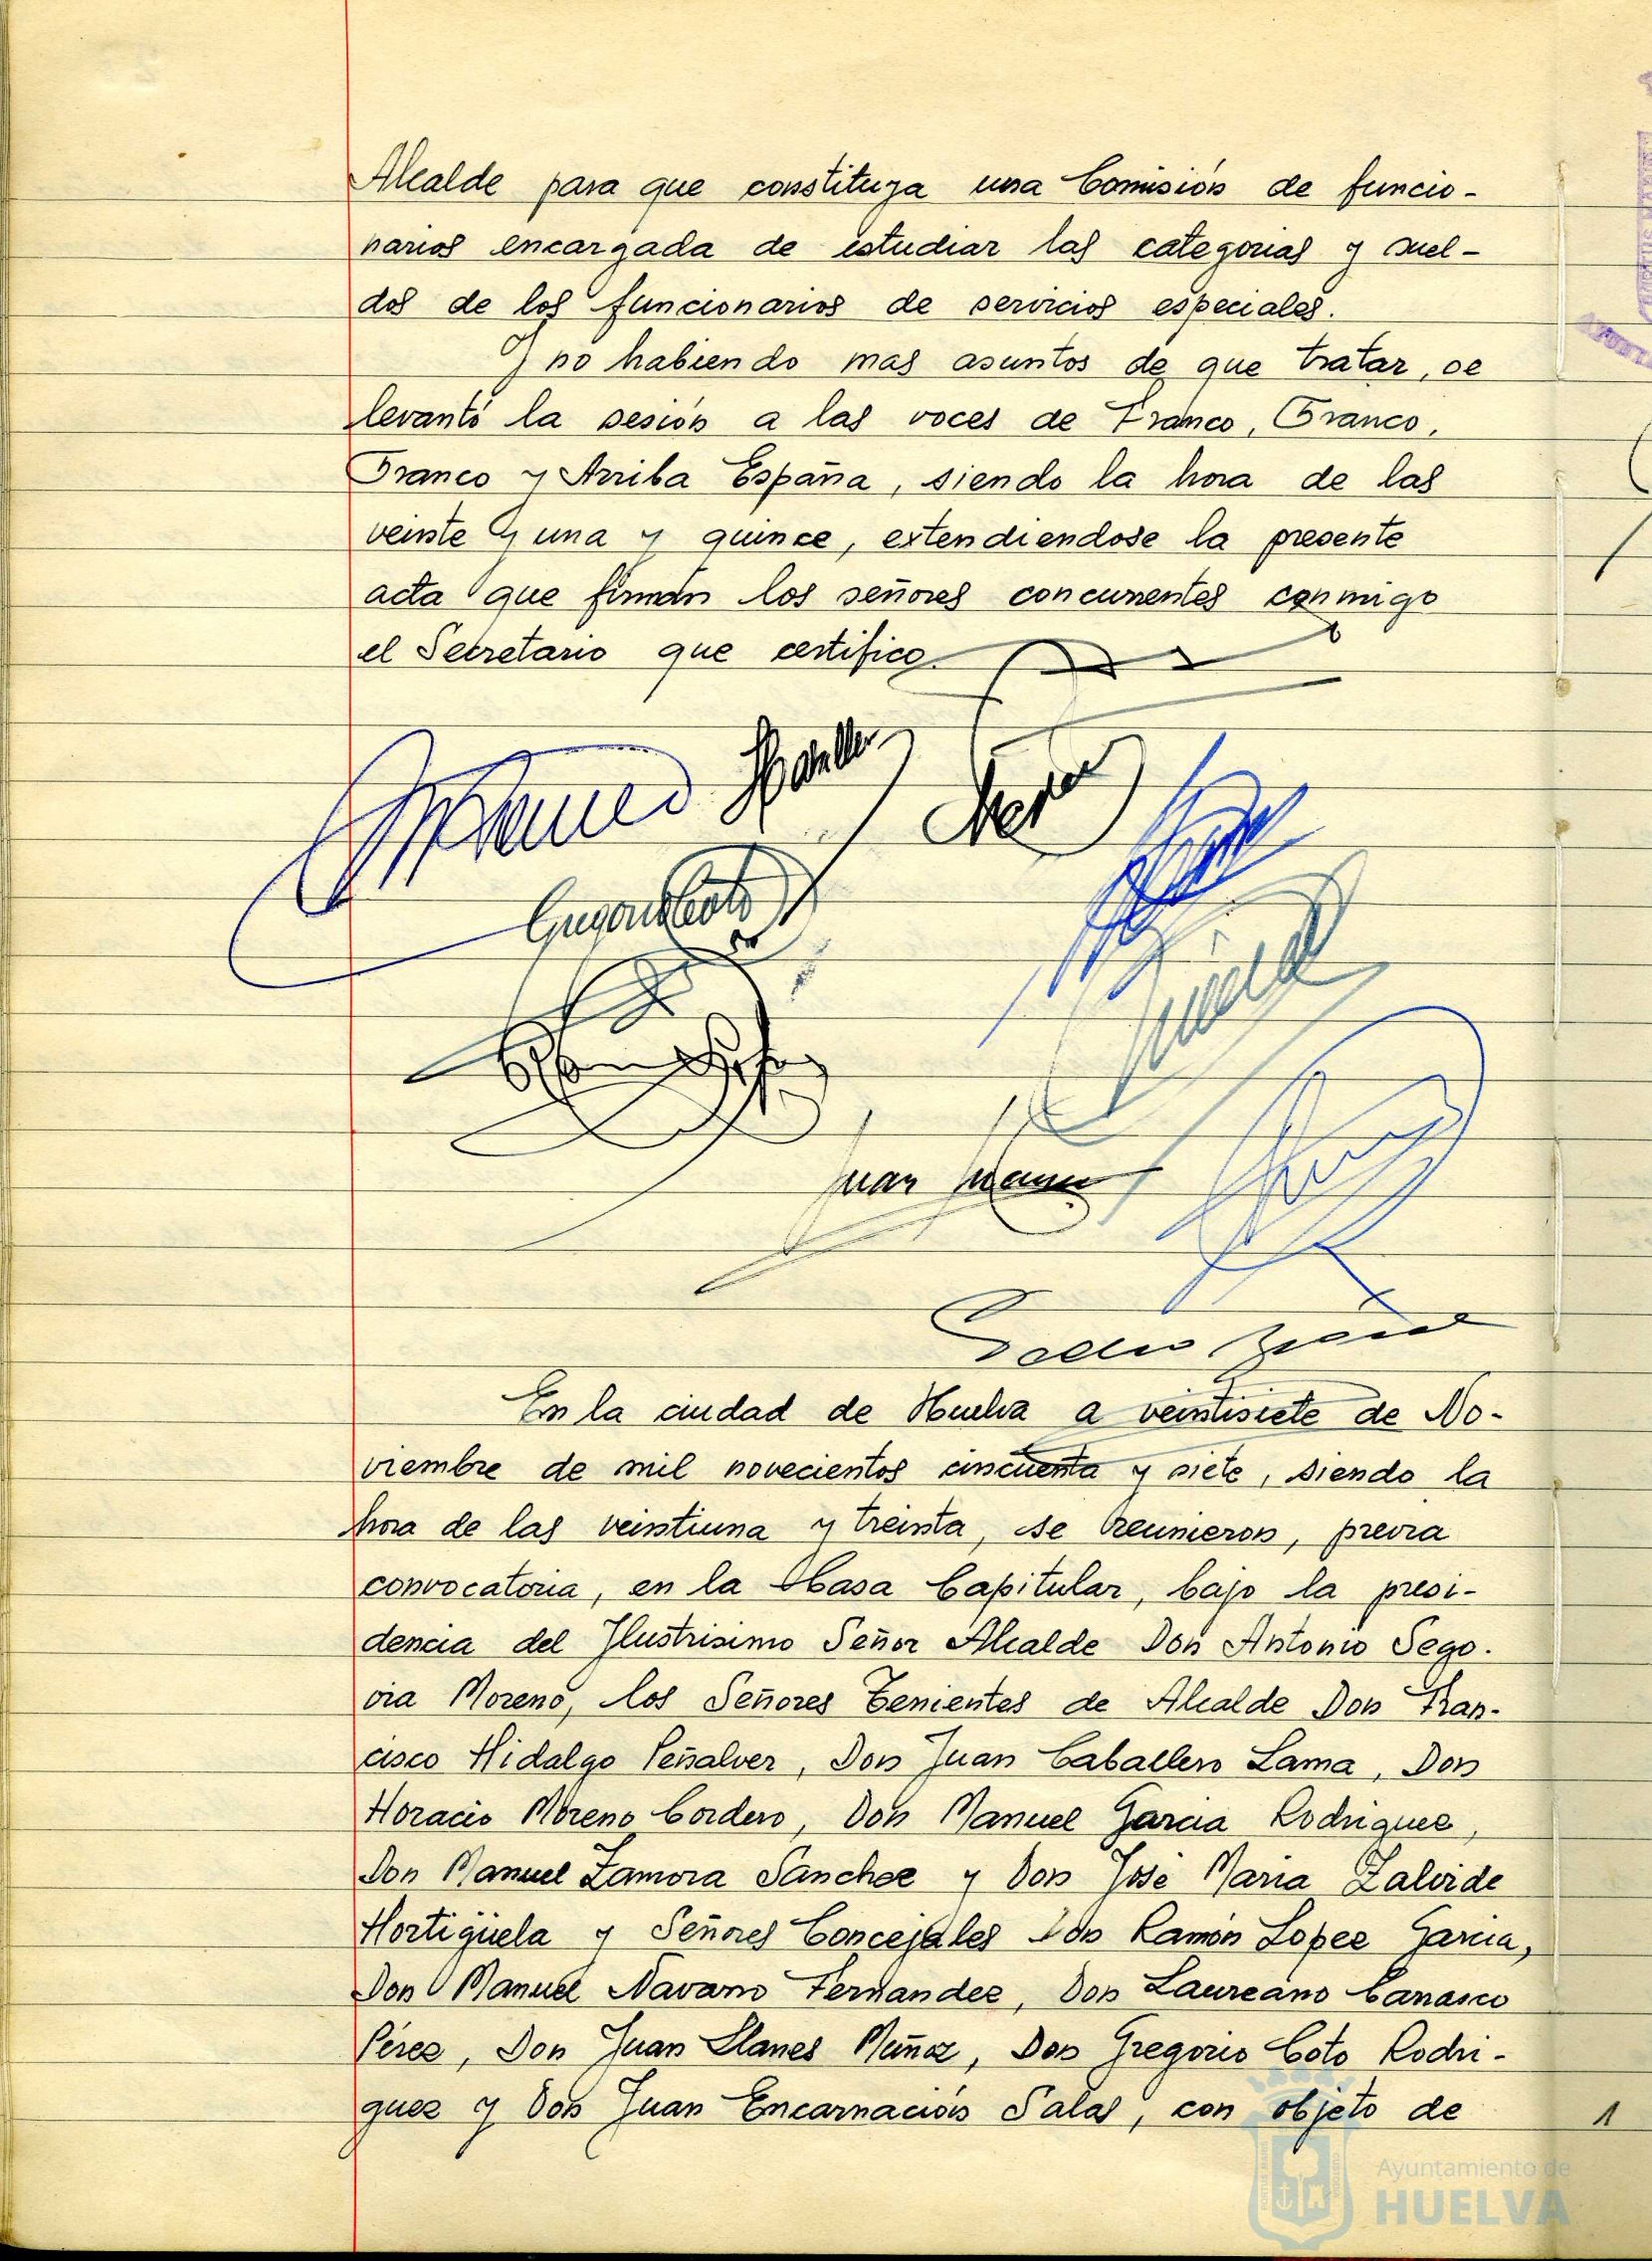 Alcalde para que constituya una Comisión de funcio-
narios encargada de estudiar las categorias y suel-
dos de los funcionarios de servicios especiales.
Y no habiendo mas asuntos de que tratar, se
levantó la sesión a las voces de Franco, Franco,
Franco y Arriba España, siendo la hora de las
veinte y una y quince, extendiendose la presente
acta que firman los señores concurrentes conmigo
el Secretario que certifico.
Juan
En la ciudad de Huelva a veintisiete de No-
viembre de mil novecientos cincuenta y siete, siendo la
hora de las veintiuna y treinta, se reunieron, previa
convocatoria, en la Casa Capitular, bajo la presi-
dencia del Ilustrisimo Señor Alcalde Don Antonio Sego-
via Moreno, los Señores Tenientes de Alcalde Don Fran-
cisco Hidalgo Peñalver, Don Juan Caballero Lama, Don
Horacio Moreno Cordero, Don Manuel Garcia Rodriguez,
Don Manuel Zamora Sanchez y Don José Maria Zalvide
Hortigüela y Señores Concejales Don Ramón Lopez Garcia,
Don Manuel Navarro Fernandez, Don Laureano Carrasco
Pérez, Don Juan Llanes Muñoz, Don Gregorio Coto Rodri-
guez y Don Juan Encarnación Salas, con objeto de
1
Ayuntamiento de
HUELVA